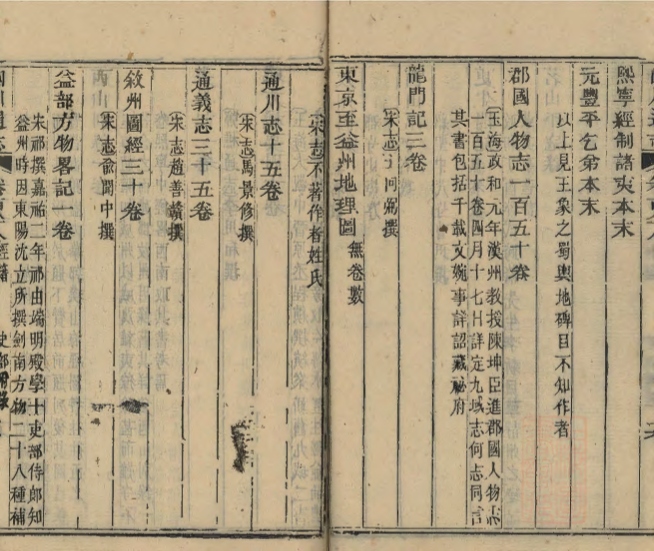 熙寧經制諸夷本末
元豐平乞弟本末
以上見王象之蜀輿地碑目不知作者
郡國人物志一百五十卷
玉海政和元年漢州教授陳坤臣進郡國人物志
一百五十卷四月十七日詳定九域志何志同言
其書包括千載文婉事詳詔藏祕府
龍門記三卷
宋志于向撰
東京至益州地理圖無卷數
宋志不著作者姓氏
通川志十五卷
宋志馬景修撰
通義志三十五卷
宋志趙善贛撰
敘州圖經三十卷
宋志俞聞中撰
益部方物畧記一卷
宋祁撰嘉祐二年祁由端明殿學士吏部侍郎知
益州時因東陽沈立所撰劍南方物二十八種補